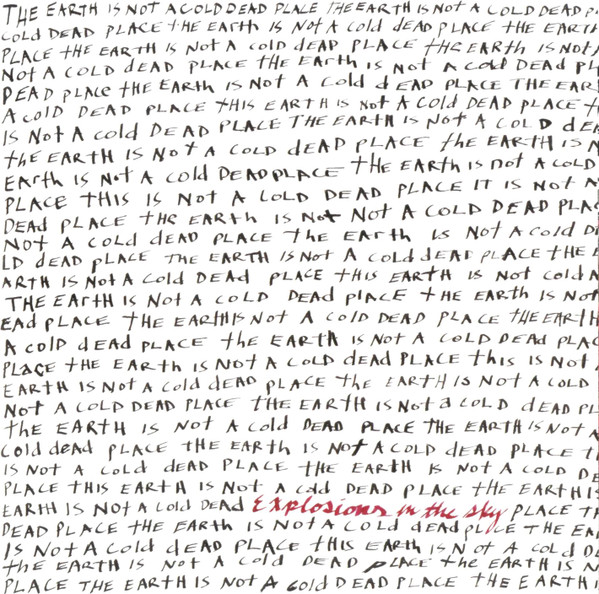 THE EARTH IS NOT A COLD DEAD PLACE THE EARTH IS NOT A COLD DEAD P
COLD DEAD PLACE THE EARTH IS NOT A cold dEAD pLACE THE EARTH
PLACE tHE EARTH IS NOT A cold dEAD PLACE tHE EARTH IS NOT
NOT A COLD dEAD PLACE the EARTH IS NOT A cold DEAd PL
DEAD pLACE tHE EARth IS NOT A Cold dEAD PLACE THE EAR
A cOLD DEAD PLACE tHIS EARTH IS NOt A COLD DEAD PLACE t
IS NOt A cold DEAD PLACE THE EARTH IS NOT A COLD dE
tHE EARTH IS NOT A COLD dEAD PLACE tHE EARTH IS N
EARth IS Not A cold DEAD PLACE tHE EARTH IS not A COLD
PLACE THIS IS NOT A COLD DEAD PLACE IT IS NOT A
DEAd PLACE tHE EARTH IS Not NOT A COLD DEAD PLA
NOT A COLd dEAD PLACE the EARth IS NOT A cold D
LD dEAD pLACE THE EARTH IS NOT A Cold dEAD PLACE tHE E
ARTH IS NOt A Cold DEAd PLACE tHIS EARTH IS NOT cold A
THE EARtH IS NOT A COLD DEAd plACE tHE EARTH IS NOt
EAd pLACE THE EARtH IS NOT A COLD DEAD PLACE THE EARtH
A COLD dEAD PLACE tHE EARth IS NOT A COLD DEAd PLAC
PLAcE tHE EARTH IS NOT A COLD dEAd PLACE tHIS IS NOT
EARTH IS NOT A cold dEAD pLACE the EARTH IS NOT A COLD
NOT A COLD DEAD PLACE THE EARTH IS NOT a cOLD dEAD PL
tHE EARTH IS NOT A COLD DEAD PLACE THE EARTH IS NOT A
COld dEAd PLACE THE EARTH IS NOT A COLD dEAD PLACE t
IS NOT A COLD dEAD PLACE tHE EARTH IS NOT A COLD DE
PLACE THIS EARTH IS NOT A cold DEAD PLACE tHE EARTH IS
EARTH IS NOT A COLD DEAD Explosions in the sky PLACE TH
DEAD PLACE tHE EARTH IS NOT A COLD dEAd pLACE THE EA
IS NOT A Cold dEAD PLACE tHIS EARTH IS NOT A COLD D
tHE EARTH IS NOT A COLD DEAD pLACE tHE EARTH IS N
PLACE THE EARTH IS NOT A COLD DEAD PLACE tHE EARTH I